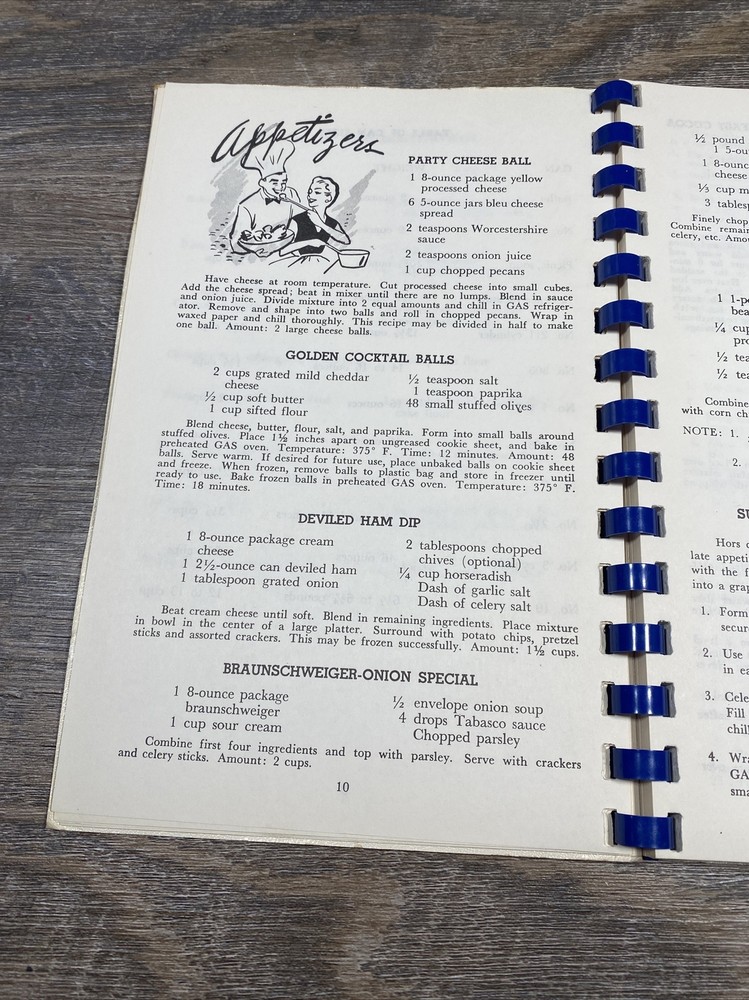 Appetizers
PARTY CHEESE BALL
1 8-ounce package yellow
processed cheese
6 5-ounce jars bleu cheese
spread
2 teaspoons Worcestershire
sauce
2 teaspoons onion juice
1 cup chopped pecans
Have cheese at room temperature. Cut processed cheese into small cubes.
Add the cheese spread; beat in mixer until there are no lumps. Blend in sauce
and onion juice. Divide mixture into 2 equal amounts and chill in GAS refriger-
ator. Remove and shape into two balls and roll in chopped pecans. Wrap in
waxed paper and chill thoroughly. This recipe may be divided in half to make
one ball. Amount: 2 large cheese balls.
GOLDEN COCKTAIL BALLS
2 cups grated mild cheddar
cheese
½ cup soft butter
1 cup sifted flour
½ teaspoon salt
1 teaspoon paprika
48 small stuffed olives
Blend cheese, butter, flour, salt, and paprika. Form into small balls around
stuffed olives. Place 1½ inches apart on ungreased cookie sheet, and bake in
preheated GAS oven. Temperature: 375° F. Time: 12 minutes. Amount: 48
balls. Serve warm. If desired for future use, place unbaked balls on cookie sheet
and freeze. When frozen, remove balls to plastic bag and store in freezer until
ready to use. Bake frozen balls in preheated GAS oven. Temperature: 375° F.
Time: 18 minutes.
DEVILED HAM DIP
1 8-ounce package cream
cheese
1 2½-ounce can deviled ham
1 tablespoon grated onion
2 tablespoons chopped
chives (optional)
¼ cup horseradish
Dash of garlic salt
Dash of celery salt
Beat cream cheese until soft. Blend in remaining ingredients. Place mixture
in bowl in the center of a large platter. Surround with potato chips, pretzel
sticks and assorted crackers. This may be frozen successfully. Amount: 1½ cups.
BRAUNSCHWEIGER-ONION SPECIAL
1 8-ounce package
braunschweiger
1 cup sour cream
½ envelope onion soup
4 drops Tabasco sauce
Chopped parsley
Combine first four ingredients and top with parsley. Serve with crackers
and celery sticks. Amount: 2 cups.
10
½ pound
1
1
cheese
⅓ cup
3
Finely
Combine
celery, etc.
1
¼
½
½
Combine
with corn
NOTE: 1.
2.
Hors
late
with the
into a
1. Form
2. Use
in
3.
Fill
4.